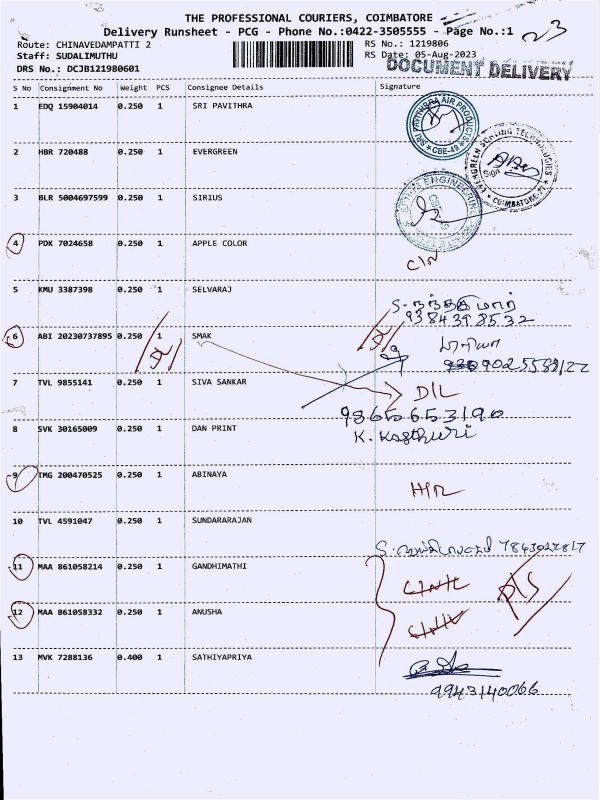 THE PROFESSIONAL COURIERS, COIMBATORE
Delivery Runsheet - PCG - Phone No.:0422-3505555 - Page No.:1
23
Route: CHINAVEDAMPATTI 2
RS No.: 1219806
Staff: SUDALIMUTHU
RS Date: 05-Aug-2023
DRS No.: DCJB121980601
DOCUMENT DELIVERY
S No Consignment No Weight PCS Consignee Details Signature
1 EDQ 15904014 0.250 1 SRI PAVITHRA
SRI PAVITHRA AIR PRODUCTS
* CBE-49 *
2 HBR 720488 0.250 1 EVERGREEN
EVERGREEN TECHNOLOGIES
Sign
COIMBATORE-
3 BLR 5004697599 0.250 1 SIRIUS
ENGINEERING
4 PDK 7024658 0.250 1 APPLE COLOR
5 KMU 3387398 0.250 1 SELVARAJ
9384398532
6 ABI 20230737895 0.250 1 SMAK
7 TVL 9855141 0.250 1 SIVA SANKAR
D/L
9865653190
8 SVK 30165009 0.250 1 DAN PRINT
K. Kasthuri
9 TMG 200470525 0.250 1 ABINAYA
10 TVL 4591047 0.250 1 SUNDARARAJAN
11 MAA 861058214 0.250 1 GANDHIMATHI
12 MAA 861058332 0.250 1 ANUSHA
13 MVK 7288136 0.400 1 SATHIYAPRIYA
9943140066